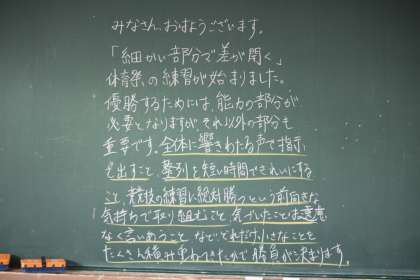 みなさん、おはようございます。
「細かい部分で差が開く」
体育祭の練習が始まりました。
優勝するためには、能力の部分が
必要となりますが、それ以外の部分も
重要です。全体に響きわたる声で指示
を出すこと、整列を短い時間できれいにする
こと、競技の練習に絶対勝つという前向きな
気持ちで取り組むこと、気づいたことは遠慮
なく言いあうこと など、どれだけ小さなことを
たくさん積み重ねてきたかで勝負が決まります。